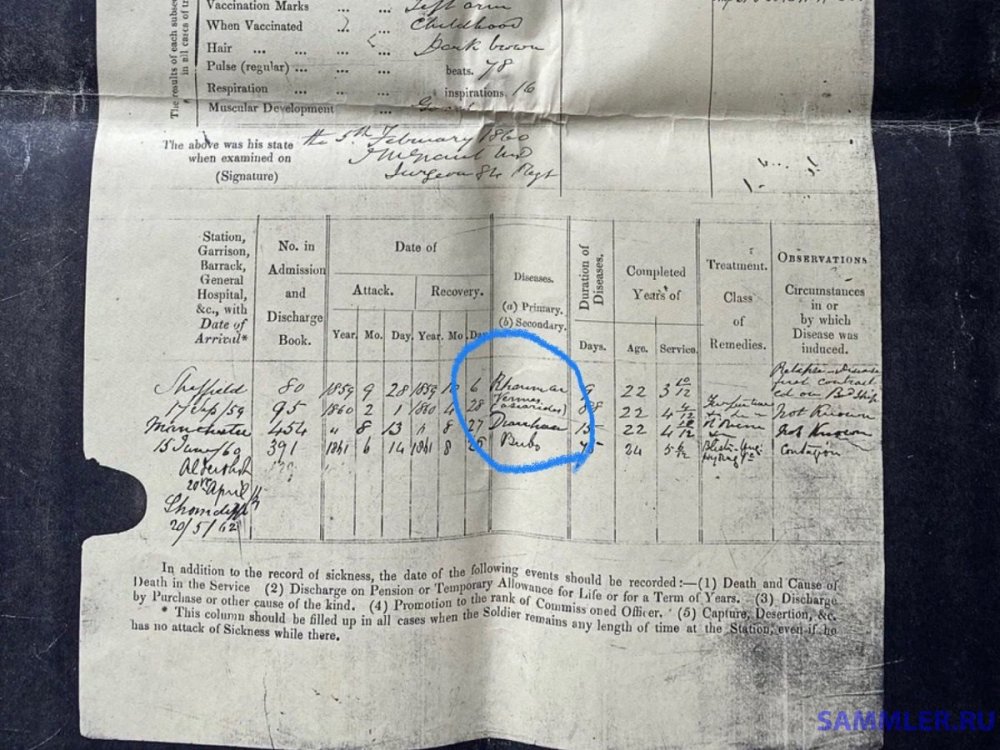 The results of each subse
in all cases of t
Vaccination Marks ... left arm
When Vaccinated ... Childhood
Hair ... ... ... Dark brown
Pulse (regular) ... ... ... beats. 78
Respiration ... ... inspirations. 16
Muscular Development ...
The above was his state when examined on (Signature)
the 5th February 1860
Surgeon 84 Regt
Station, Garrison, Barrack, General Hospital, &c., with Date of Arrival*
No. in Admission and Discharge Book.
Date of
Attack. Recovery.
Year. Mo. Day. Year. Mo. Day.
Diseases.
(a) Primary.
(b) Secondary.
Duration of Diseases.
Days.
Completed Years of
Age. Service.
Treatment.
Class of Remedies.
OBSERVATIONS
Circumstances in or by which Disease was induced.
Sheffield 80 1859 9 28 1859 10 6 9 22 3 10/12
95 1860 2 1 1860 4 28 Vermes (ascarides) 88 22 4 Not Known
Manchester 454 " 8 13 " 8 27 Diarrhoea 15 22 4 Not Known
15 June/60 391 1861 6 14 1861 8 Bubo 75 24 5 Contagion
Aldershot
April
Shorncliffe
20/5/62
In addition to the record of sickness, the date of the following events should be recorded:—(1) Death and Cause of
Death in the Service (2) Discharge on Pension or Temporary Allowance for Life or for a Term of Years. (3) Discharge
by Purchase or other cause of the kind. (4) Promotion to the rank of Commissioned Officer. (5) Capture, Desertion, &c.
* This column should be filled up in all cases when the Soldier remains any length of time at the Station, even if he
has no attack of Sickness while there.
SAMMLER.RU